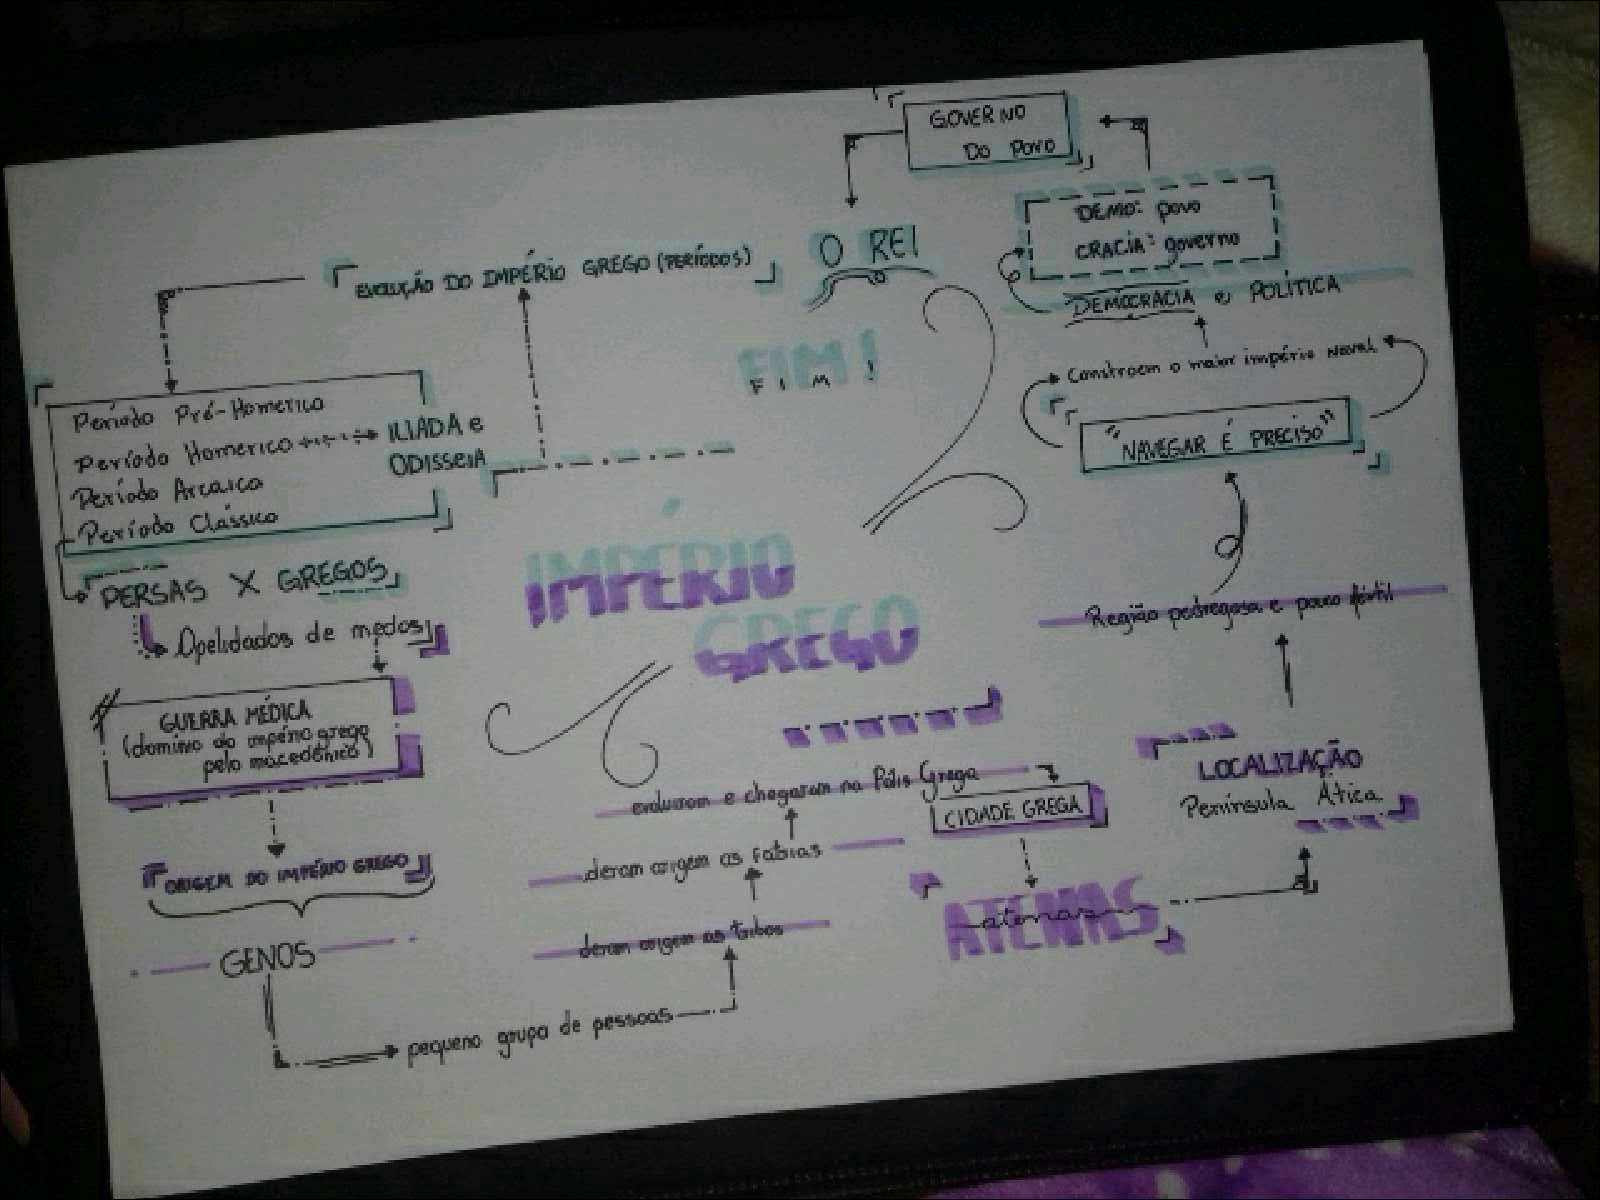 GOVERNO
DO POVO
DEMO: povo
CRACIA: governo
O REI
EVOLUÇÃO DO IMPÉRIO GREGO (PERÍODOS)
DEMOCRACIA e POLÍTICA
FIM!
FIM!
Constroem o maior império naval
Período Pré-Homerico
Período Homerico ILIADA e
ODISSEIA
Período Arcaico
Período Clássico
"NAVEGAR É PRECISO"
IMPÉRIO
GREGO
PERSAS X GREGOS
Apelidados de medos
Região pedregosa e pouco fértil
GUERRA MÉDICA
(domínio do império grego
pelo macedônico)
LOCALIZAÇÃO
Península Ática
evoluiram e chegaram na Pólis Grega
CIDADE GREGA
deram origem as fatrias
ORIGEM DO IMPÉRIO GREGO
ATENAS
atenas
deram origem as tribos
GENOS
pequeno grupo de pessoas